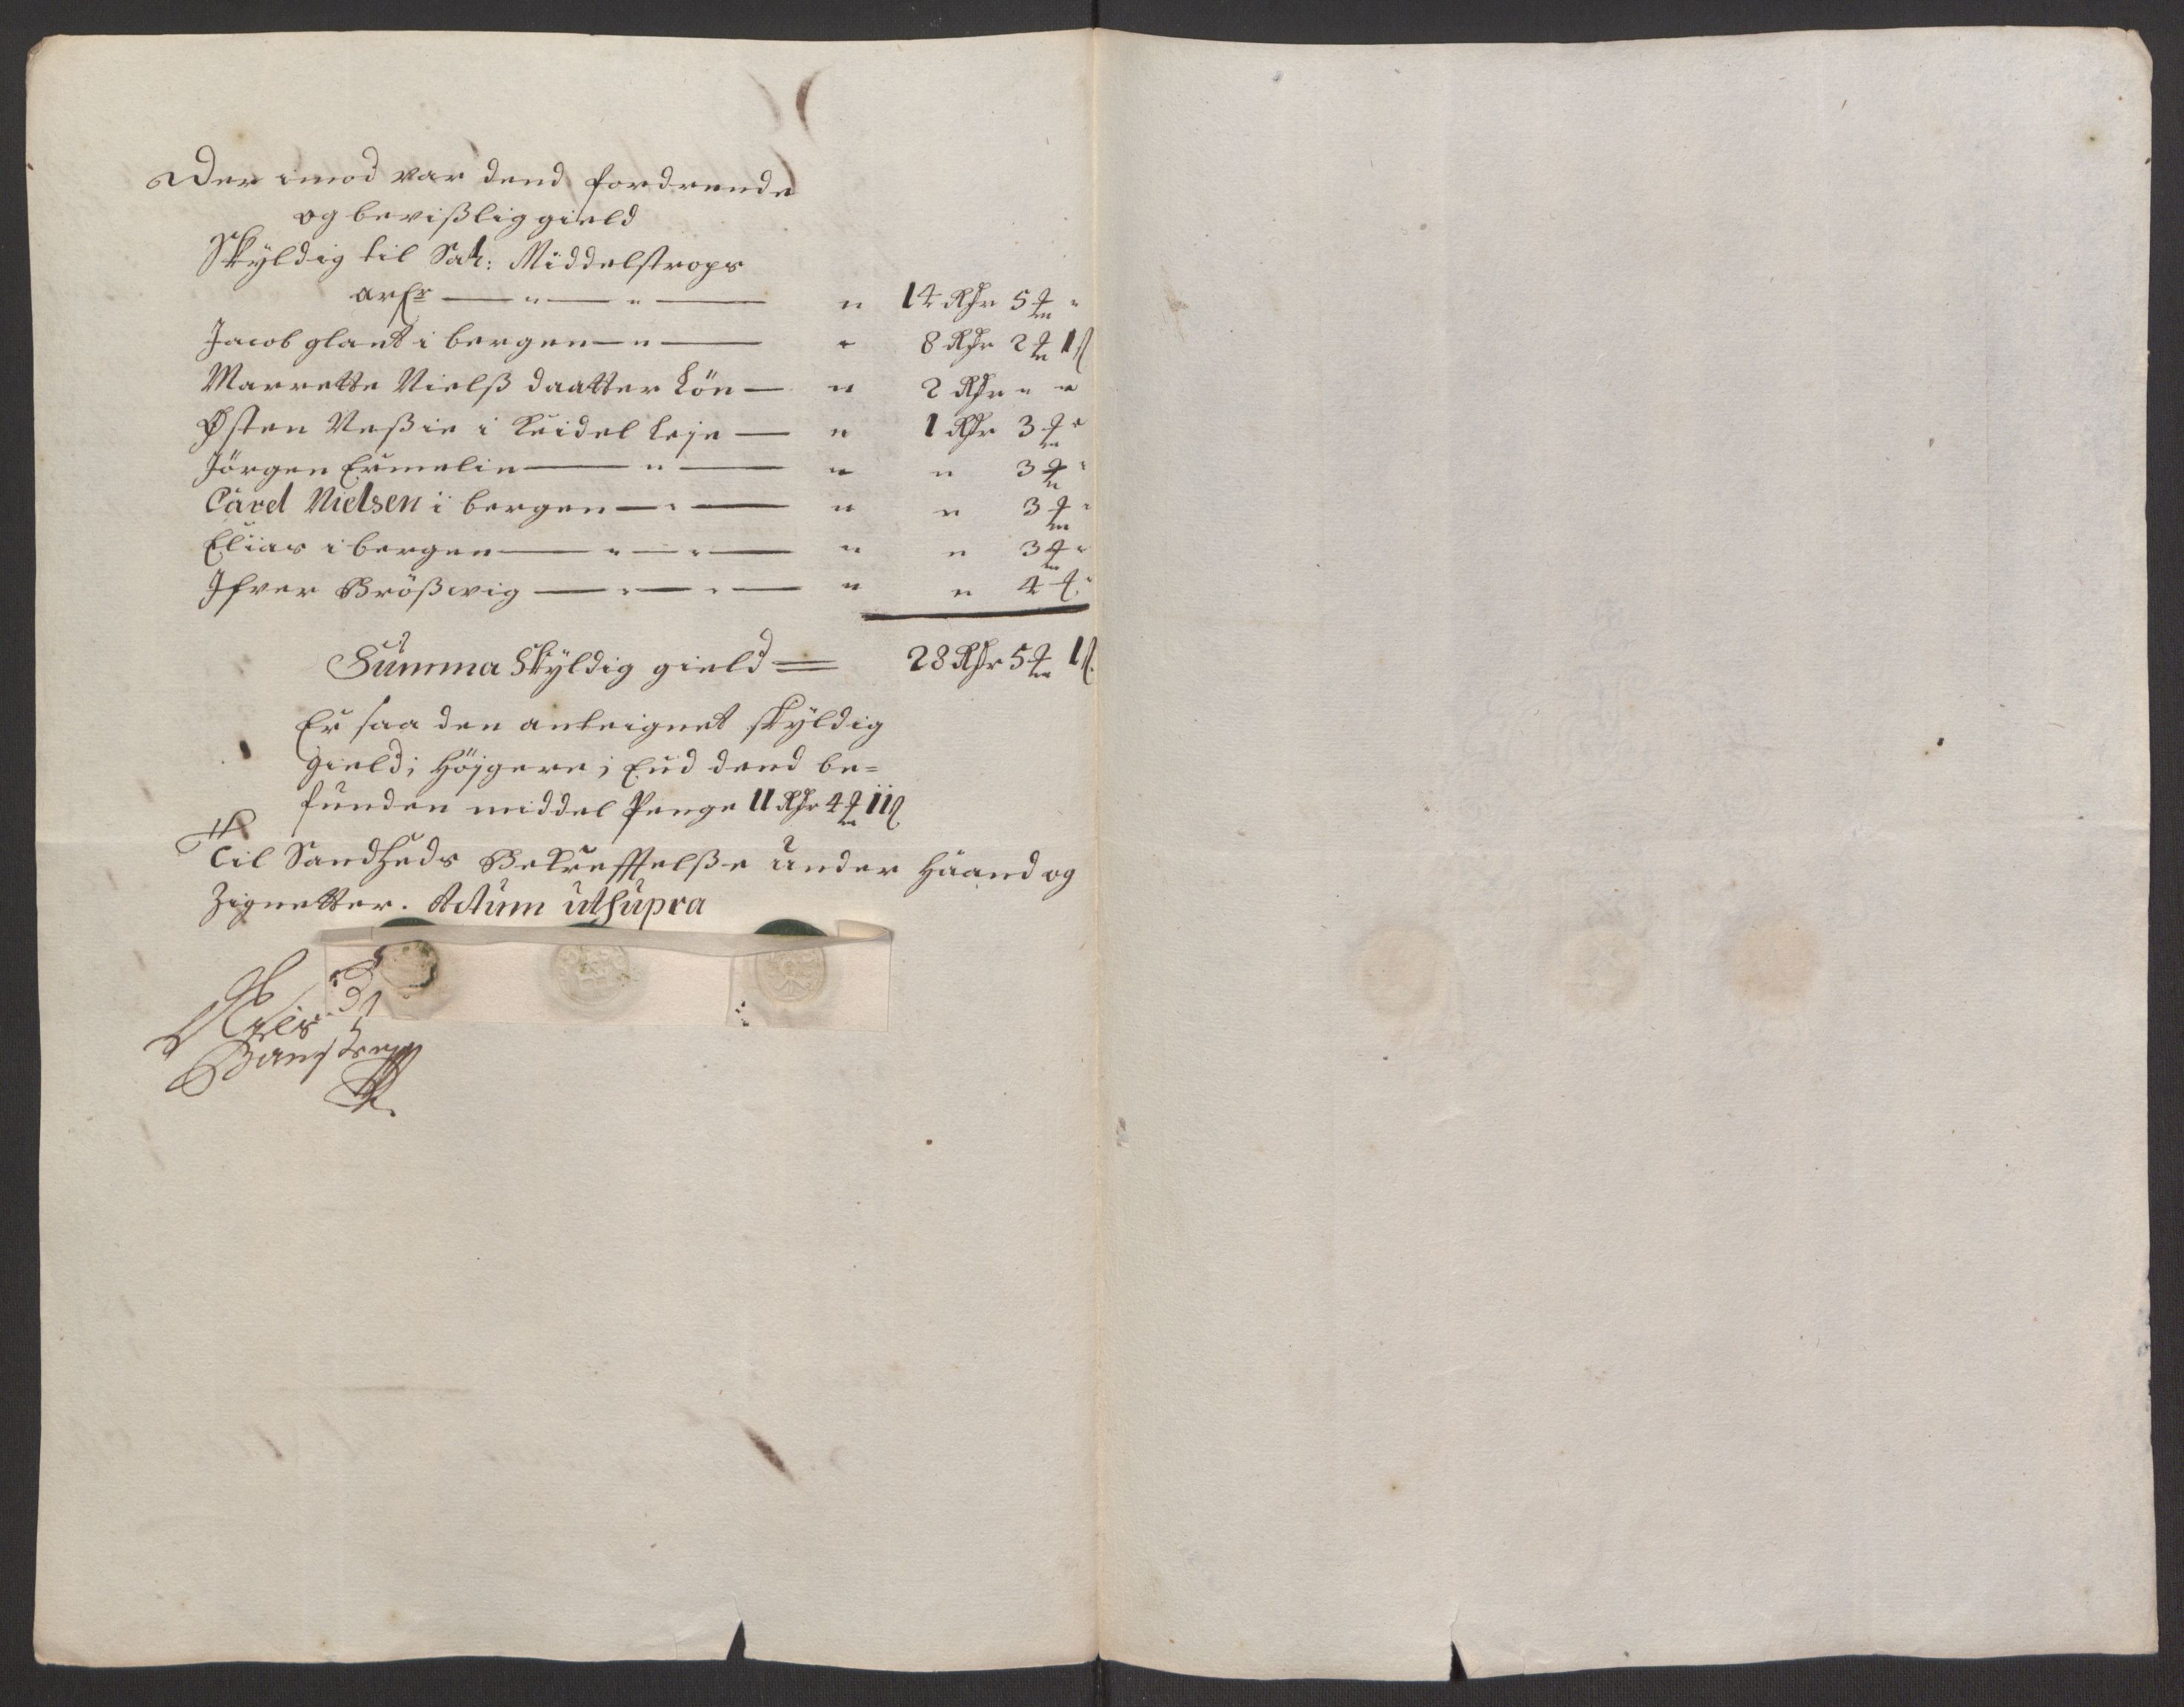 Der imod var dend fordrende
og bevißlig gield
Skyldig til Sal: Middelstrops
arf: — " — " — " 14 Rdr 5 mk "
Jacob glant i bergen — " — " 8 Rdr 2 mk 1 ß
Marrette Nielß daatter Lön — " 2 Rdr " "
Østen Neßie i Leidel Leje — " 1 Rdr 3 mk "
Jörgen Ermelin — " — " " 3 mk "
Carel Nielsen i bergen — " — " " 3 mk "
Elias i bergen — " — " — " " 3 mk "
Ifver Brößwig — " — " — " " 4 ß "
Summa Skyldig gield = 28 Rdr 5 mk 1 ß.
Er saa den anteignet skyldig
gield; Höjgere; End dend be=
funden middel Penge 11 Rdr 4 mk 11 ß
Til Sandheds Bekrefftelße under Haand og
Zignetter. Actum ut supra
Nels